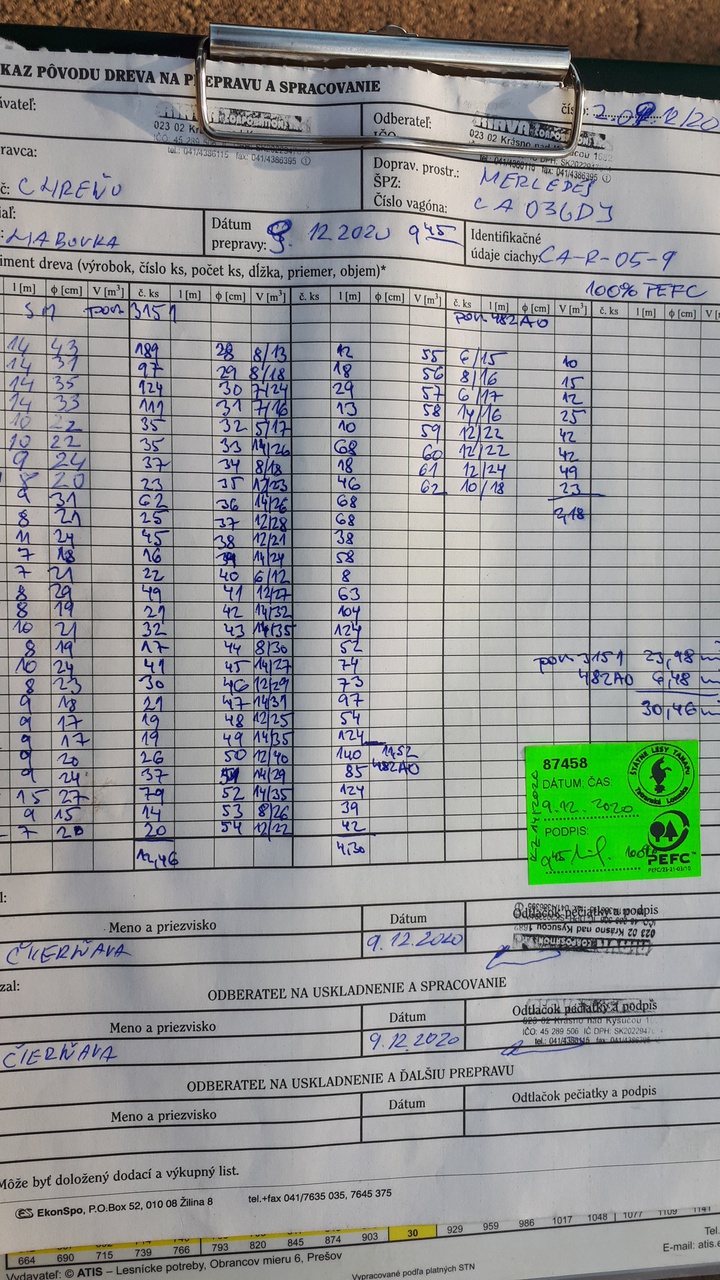 KAZ PÔVODU DREVA NA PREPRAVU A SPRACOVANIE
ávateľ:
023 02 Krásno
tel.: 041/4386115 fax: 041/4386395
Odberateľ:
IČO
023 02 Krásno nad Kysucou
ravca:
č: ČIEREŇU
Doprav. prostr.: MERCEDES
ŠPZ: CA036DJ
Číslo vagóna:
iaľ:
Dátum
prepravy: 9. 12 2020 9 45
Identifikačné
údaje ciachy: CA-R-05-9
iment dreva (výrobok, číslo ks, počet ks, dĺžka, priemer, objem)*
100% PEFC
l [m] ϕ [cm] V [m³] č. ks l [m] ϕ [cm] V [m³] č. ks l [m] ϕ [cm] V [m³] č. ks l [m] ϕ [cm] V [m³] č. ks l [m] ϕ [cm]
SM por 31511 por 482AO
14 43 189 28 8/13 12 55 6/15 10
14 31 97 29 8/18 18 56 8/16 15
14 35 124 30 7/24 29 57 6/17 12
14 33 111 31 7/16 13 58 14/16 25
10 22 35 32 5/17 10 59 12/22 42
10 22 35 33 14/26 68 60 12/22 42
9 24 37 34 8/18 18 61 12/24 49
8 20 23 35 17/23 46 62 10/18 23
9 31 62 36 14/26 68
8 21 25 37 12/28 68 2,18
11 24 45 38 12/21 38
7 18 16 39 14/24 58
7 21 22 40 6/12 8
8 29 49 41 12/27 63
8 19 21 42 14/32 104
10 21 32 43 14/35 124
8 19 17 44 8/30 52
10 24 41 45 14/27 74 por 31511 23,98 m
8 23 30 46 12/29 73 482AO 6,48 m
9 18 21 47 14/31 97
9 17 19 48 12/25 54 30,46 m
9 17 19 49 14/35 124
9 20 26 50 12/40 140 11,52
9 24 37 51 14/29 85 482AO
15 27 79 52 14/35 124
9 15 14 53 8/26 39
7 20 20 54 12/22 42
12,46 4,30
87458
DÁTUM: ČAS:
9.12.2020
PODPIS:
9 45
100%
ŠTÁTNE LESY TANAPU
Tatranská Lomnica
PEFC
PEFC/23-21-03/10
l:
Meno a priezvisko
Dátum
Odtlačok pečiatky a podpis
ČIERŇAVA
9.12.2020
023 02 Krásno nad Kysucou
zal:
ODBERATEĽ NA USKLADNENIE A SPRACOVANIE
Meno a priezvisko
Dátum
Odtlačok pečiatky a podpis
ČIERŇAVA
9.12.2020
023 02 Krásno nad Kysucou
IČO: 45 289 506 IČ DPH: SK2022947
tel.: 041/4386115 fax: 041/4386395
ODBERATEĽ NA USKLADNENIE A ĎALŠIU PREPRAVU
Meno a priezvisko
Dátum
Odtlačok pečiatky a podpis
Môže byť doložený dodací a výkupný list.
EkonSpo, P.O.Box 52, 010 08 Žilina 8 tel.+fax 041/7635 035, 7645 375
664 690 715 739 766 793 820 845 874 903 30 929 959 986 1017 1048 1077 1109 1141
Vydavateľ: © ATIS – Lesnícke potreby, Obrancov mieru 6, Prešov
Vypracované podľa platných STN
Tel.
E-mail: atis.